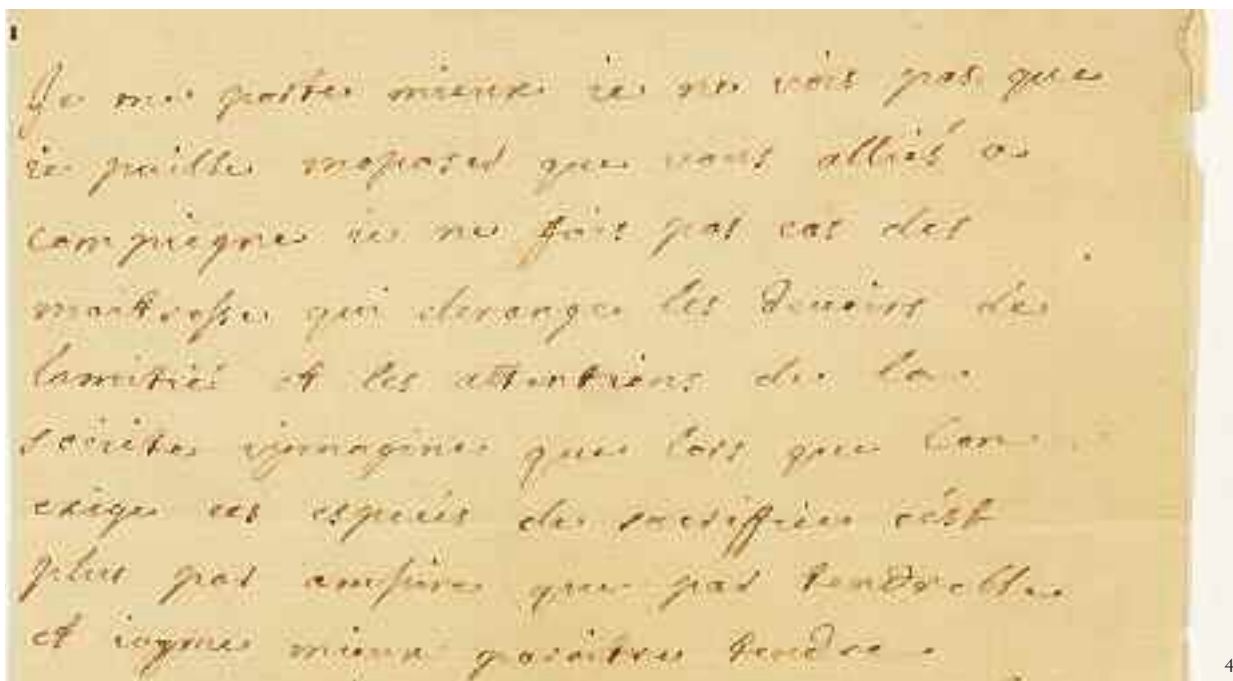 Je me porte mieux ie ne vois pas que
ie puisse moposer que vous alliés a
compiegne ie ne fais pas cas des
maitresse qui derange les devoirs de
lamitiés et les attentions de la
sociéte iimagine que lors que lon
exige ces especes de sacriffice cést
plus par que par tendresse
et iayme mieux paroitre tendre.
4